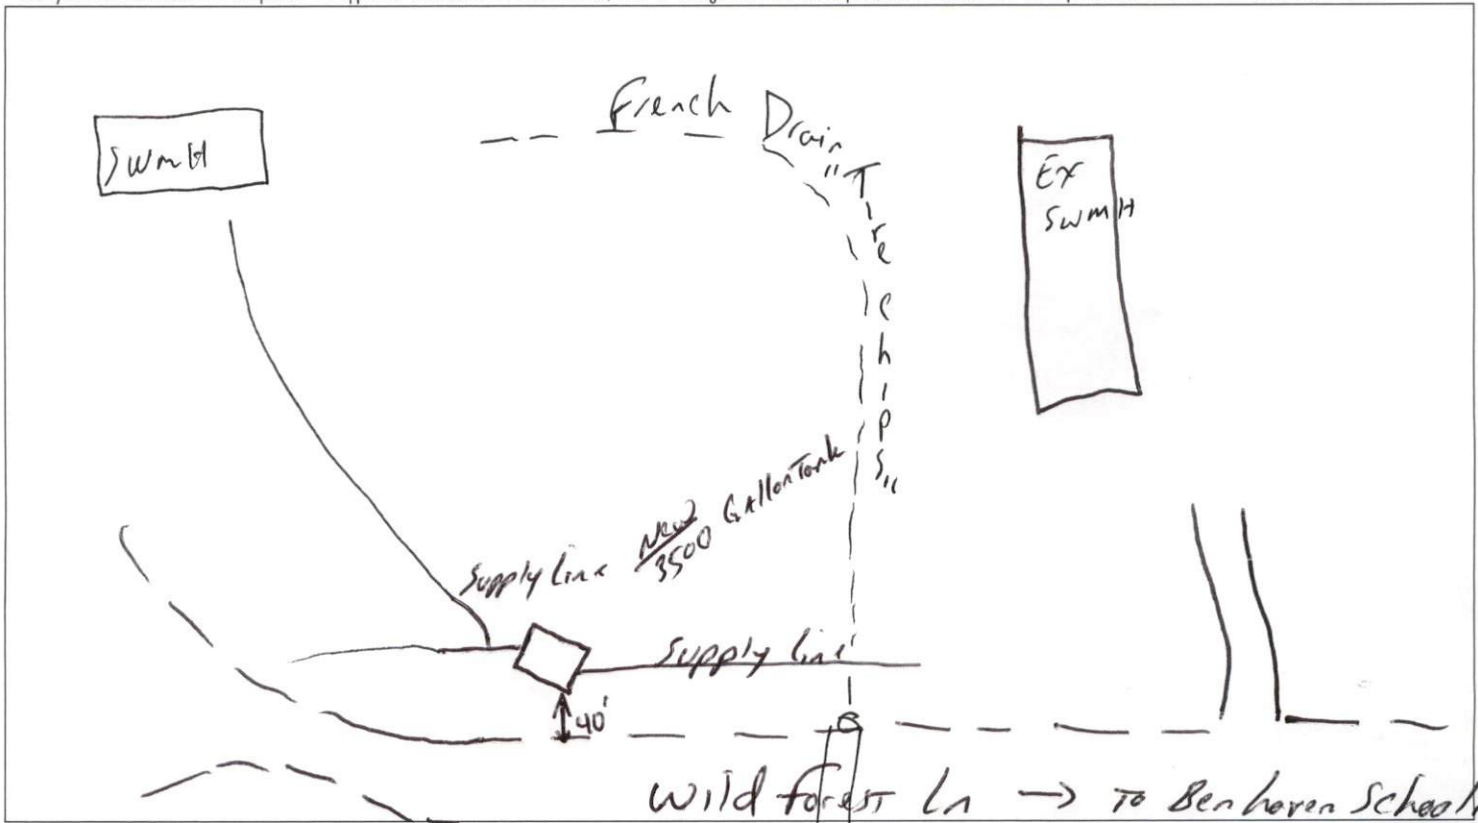 SWMH
French Drain
"Tire chips"
EX
SWMH
Supply Line
New
3500 Gallon Tank
Supply Line
40'
Wild Forest Ln → To Benhaven School